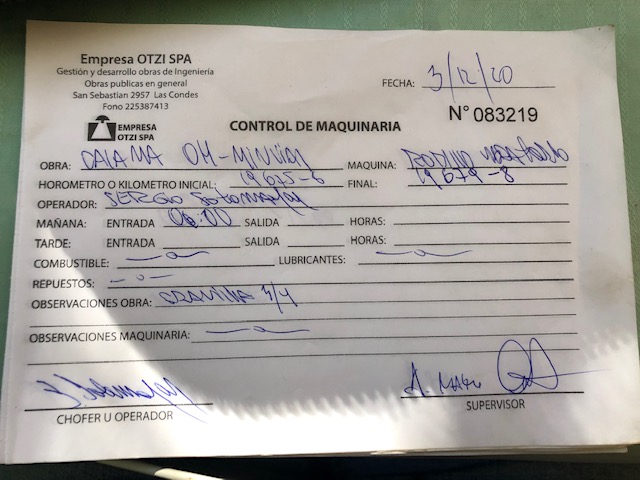 Empresa OTZI SPA
Gestión y desarrollo obras de Ingeniería
Obras públicas en general
San Sebastian 2957 Las Condes
Fono 225387413
EMPRESA
OTZI SPA
FECHA: 3/12/20
CONTROL DE MAQUINARIA
N° 083219
OBRA: CALAMA OH-MINVU MAQUINA: RODILLO
HOROMETRO O KILOMETRO INICIAL: 19675-6 FINAL: 19679-8
OPERADOR: SERGIO SOTOMAYOR
MAÑANA: ENTRADA 08:00 SALIDA HORAS:
TARDE: ENTRADA SALIDA HORAS:
COMBUSTIBLE: LUBRICANTES:
REPUESTOS:
OBSERVACIONES OBRA:
OBSERVACIONES MAQUINARIA:
CHOFER U OPERADOR
SUPERVISOR